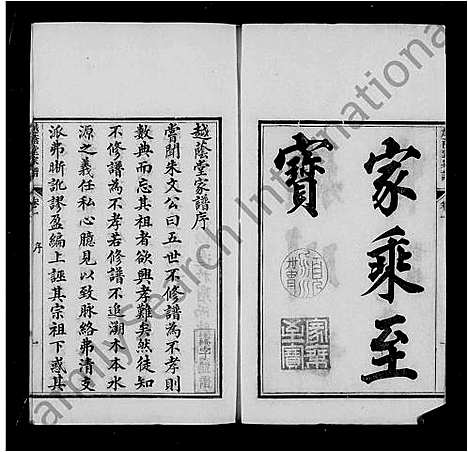 家乘至
寶
家乘
至寶
越蔭堂家譜序
嘗聞朱文公曰五世不修譜為不孝則
數典而忘其祖者欲興孝難矣然徒知
不修譜為不孝若修譜不追溯木本水
源之義任私心臆見以致脉絡弗清支
派弗晰訛謬盈編上誣其宗祖下惑其
序
一
FamilySearch International